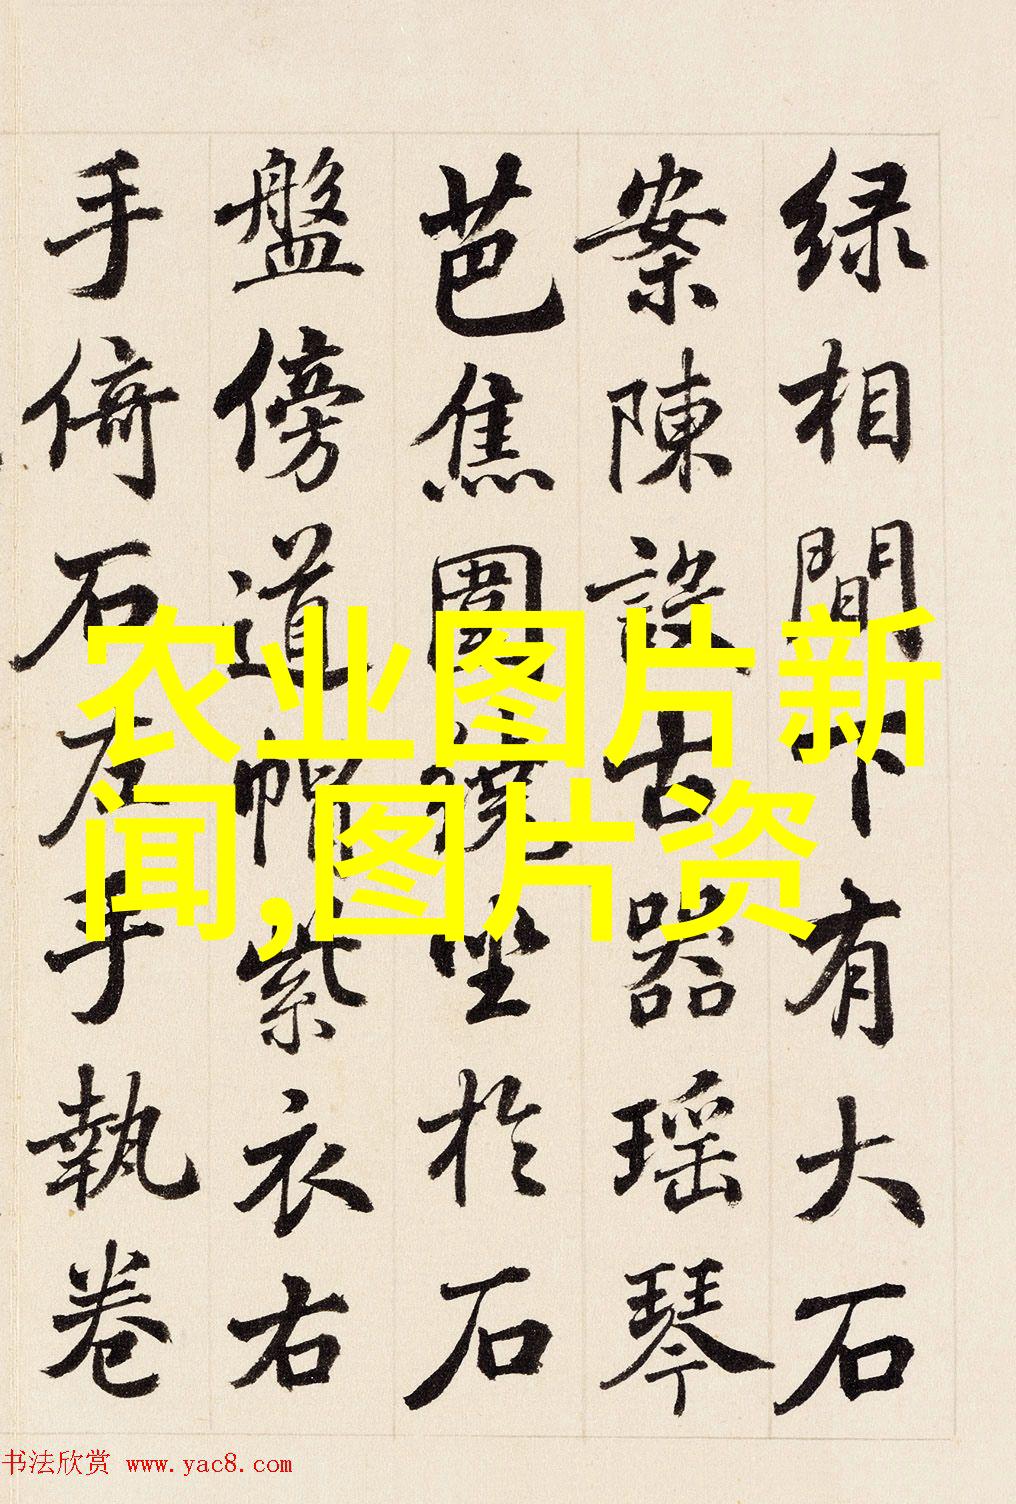 绿相間下有大石
案陳設古器瑶琴
芭焦圍繞坐於石
盤傍道帽紫衣右
手倚石左手執卷
农业图片新
闻,图片资
书法欣赏 www.yac8.com